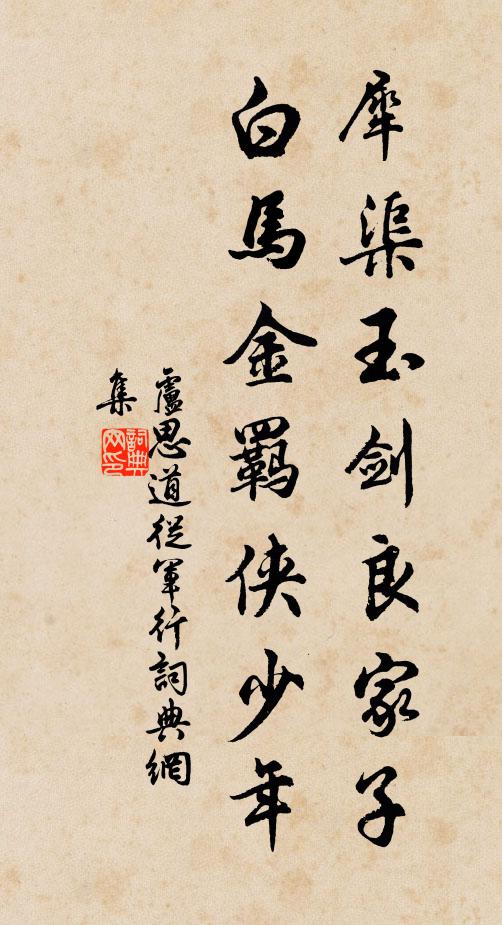 犀渠玉剑良家子
白馬金羈侠少年
盧思道從軍行詞典網
集
詞典
网印